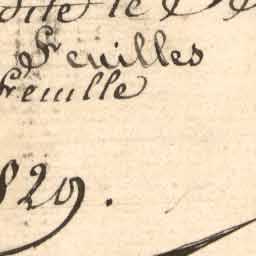 dite le
Feuilles
Feuille
829.